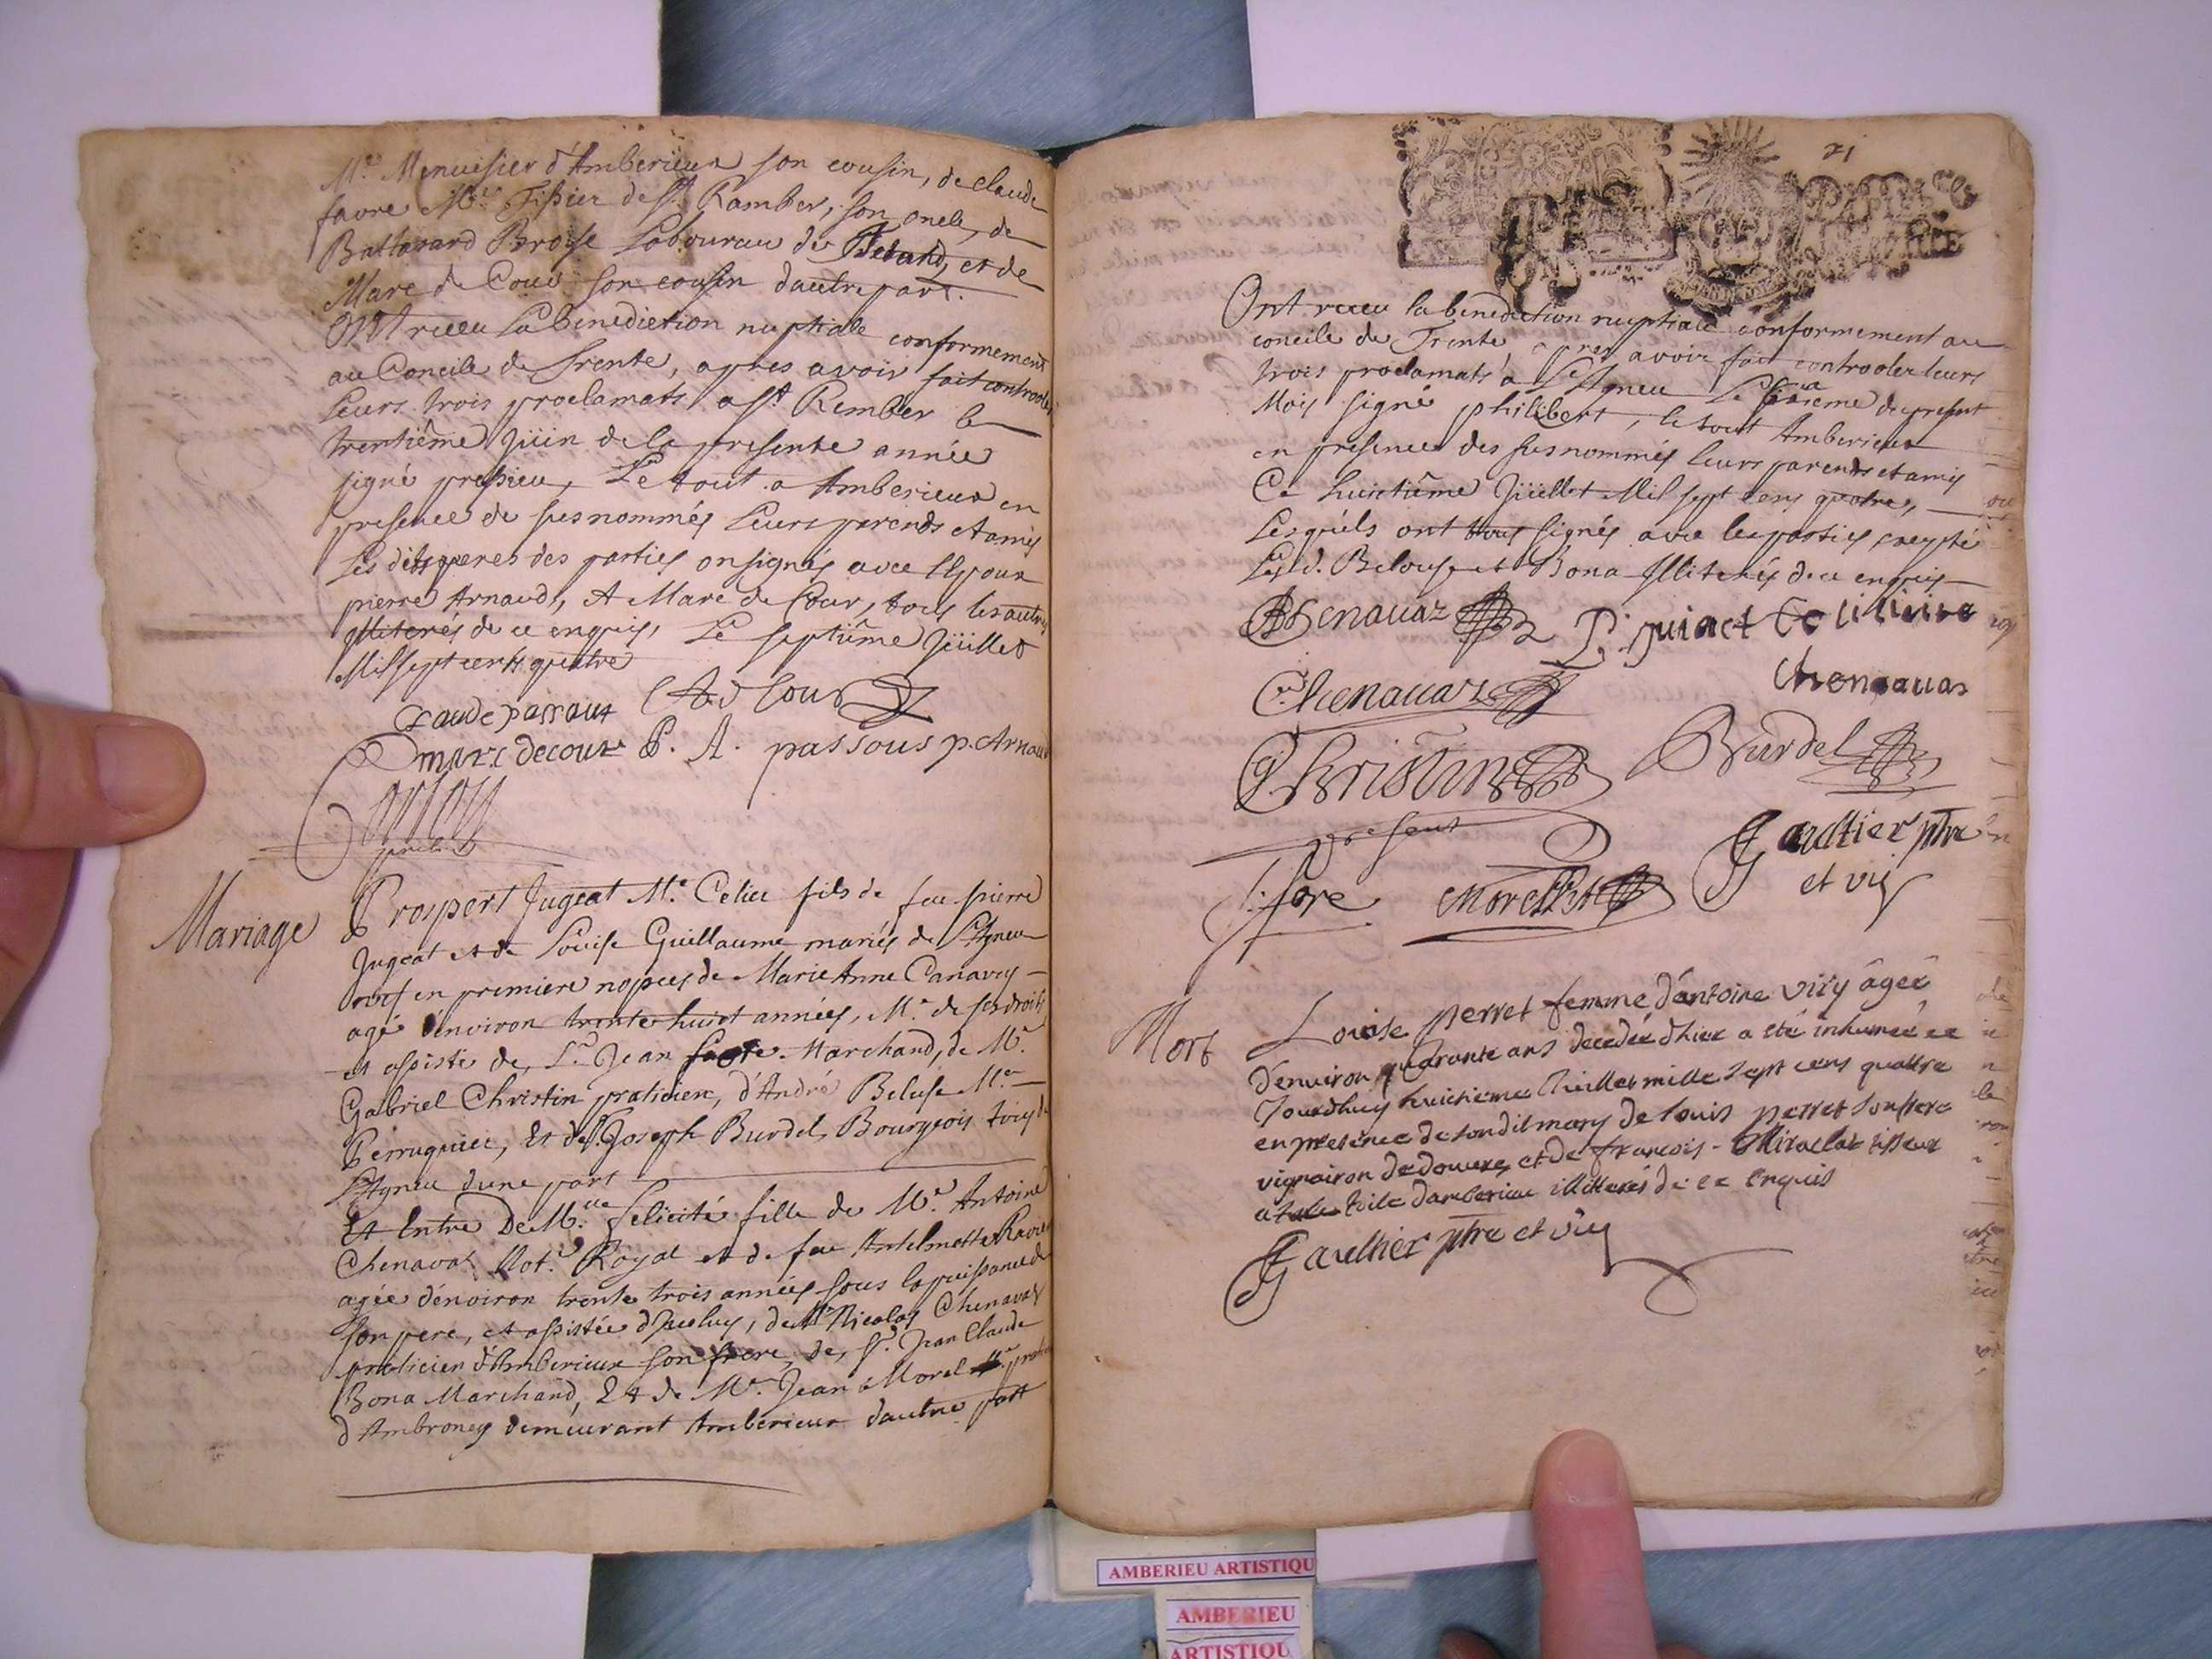 Mre Menuisier d'Amberieux son cousin, de claude
favre Mre Tissier de st Rambert, son oncle, de
Baltazard Broyse Laboureur de et de
Marc de Cour son cousin dautre part.
Ont receu La benediction nuptiale conformement
au Concile de Trente, apres avoir fait controoler
Leurs trois proclamats a st Rember le
trentiême Jüin de la presente année
signé pressieu, Le tout a Amberieux en
presence de susnommés Leurs parends et amis
Les dits peres des parties on signés avec l'Epoux
pierre Arnaud, et Marc de Cour, tous les autres
illiterés de ce enquis, Le septiême Jüillet
Mil sept cents quatre
claude passaut
marc decour P. A. passous p. Arnaud
Mariage
Prospert Jugeat Me Celier fils de feu pierre
Jugeat et de Louise Guillaume mariés de Lagneu
veuf en premiere nopces de Marie Anne Canavry
agé d'environ trente huict années, Me de ses droits
et assisté de, Sr Jean fore Marchand, de Mr
Gabriel Christin praticien, d'André Beluse Mre
Perruquier, Et de sr Joseph Burdel, Bourgeois tous de
Lagneu dune part
Et Entre DeMlle felicité fille de Mre Antoine
Chenavaz Notre Royal et de feu Antelmette Ravier
agée d'environ trente trois années sous la puissance de
son pere, et assistée d'Iceluy, de Mr Nicolas Chenavaz
praticien d'Amberieux son frere, de, sr Jean Claude
Bona Marchand, Et de Mre Jean Morel
d'Ambronay demeurant Amberieux dautre part
71
Ont receu la benediction nuptiale conformement au
concile de Trente apres avoir fait controoler leurs
trois proclamats a Lagneu Le du present
Mois signé philibert, le tout Amberieux
en presence des susnommés leurs parends et amis
Ce huictiême Jüillet Mil sept cens quatre,
Lesquels ont tous signés avec les parties, excepté
Les d. Belouse et Bona Illiterés de ce enquis
Chenavaz P. Juiact felicitée
Chenavaz chenavas
Christin Burdel
present
J. fore Morel Gaultier ptre
et vic
Mort
Louise perret femme d'antoine viry âgée
d'environ quarante ans decedée d'hier a eté inhumée ce
Jourdhuy huictieme Juillet mille sept cens quattre
en presence de son dit mary de louis perret son frere
vigneron de douvres, et de francois Miraclat tisseur
a toile damberieu illitterés de ce enquis
Gaultier ptre et vic
AMBERIEU ARTISTIQU
AMBERIEU
ARTISTIQU